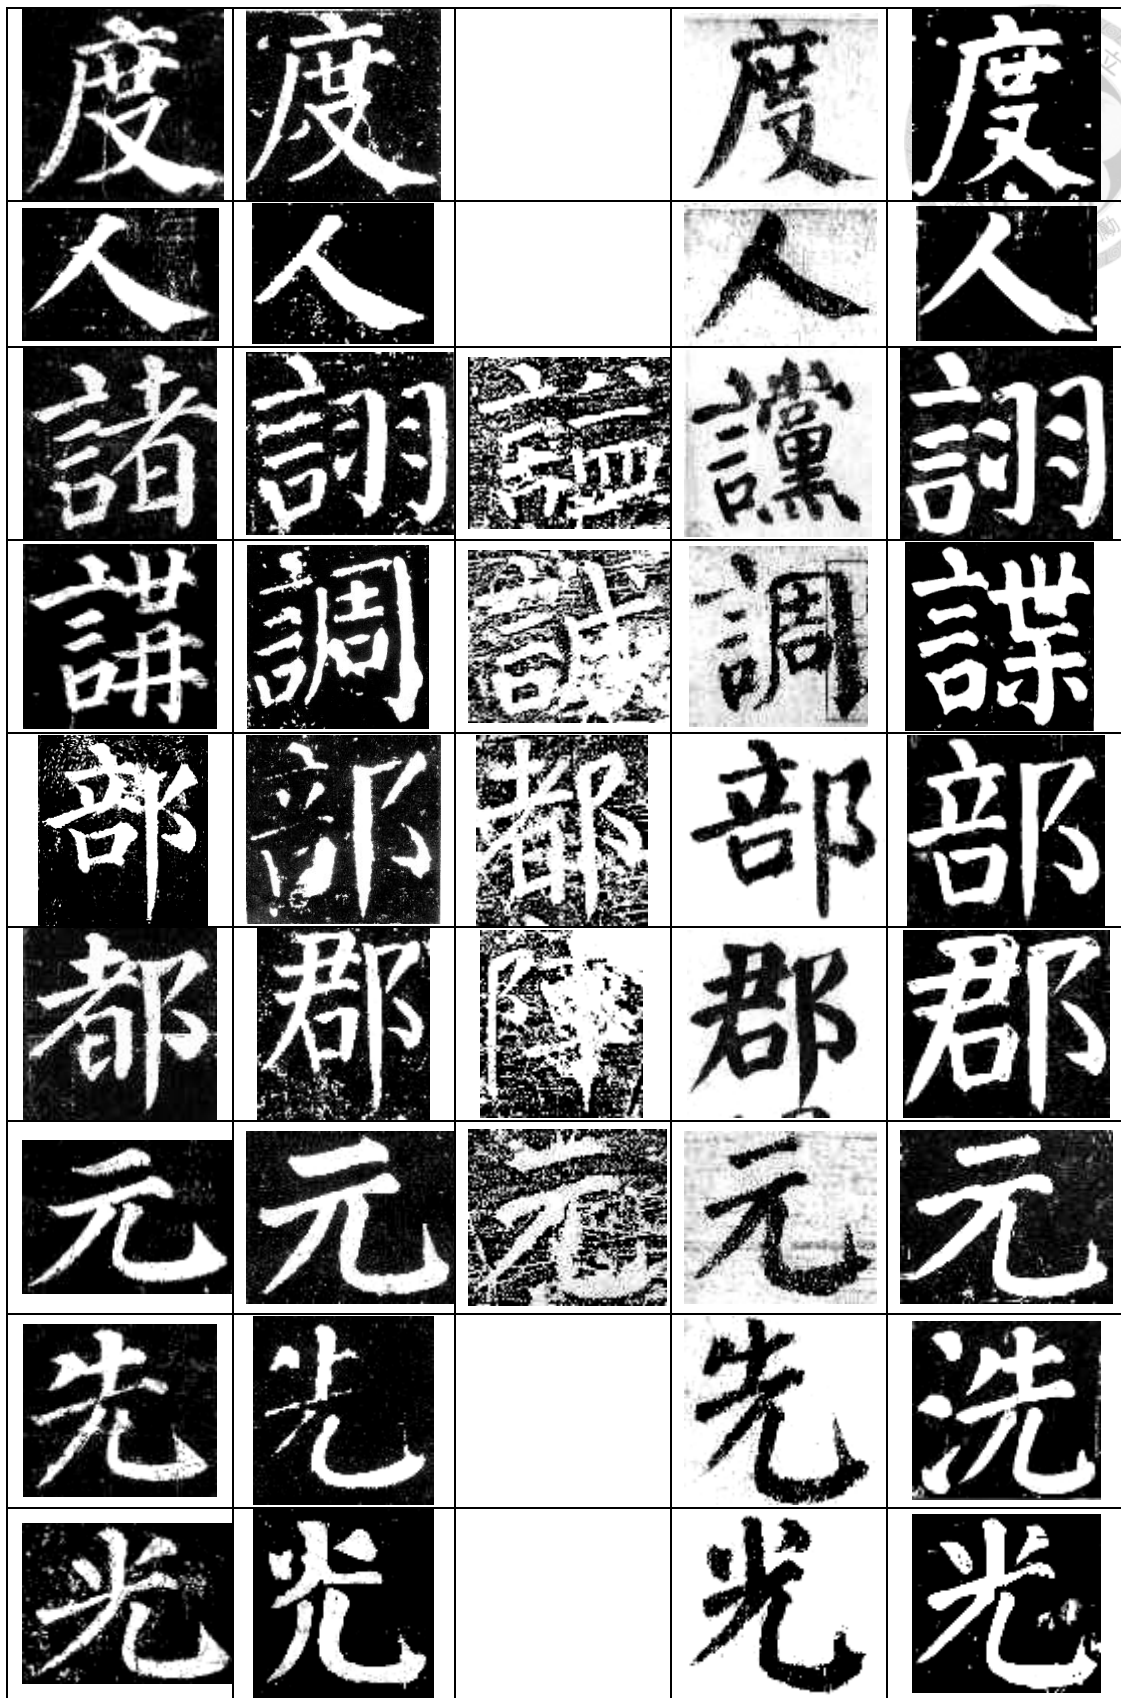 度 度 度 度
人 人 人 人
諸 詡 謚 讜 詡
講 調 諴 調 諜
部 部 都 部 部
都 郡 郡 郡
元 元 元 元 元
先 先 先 洗
光 光 光 光